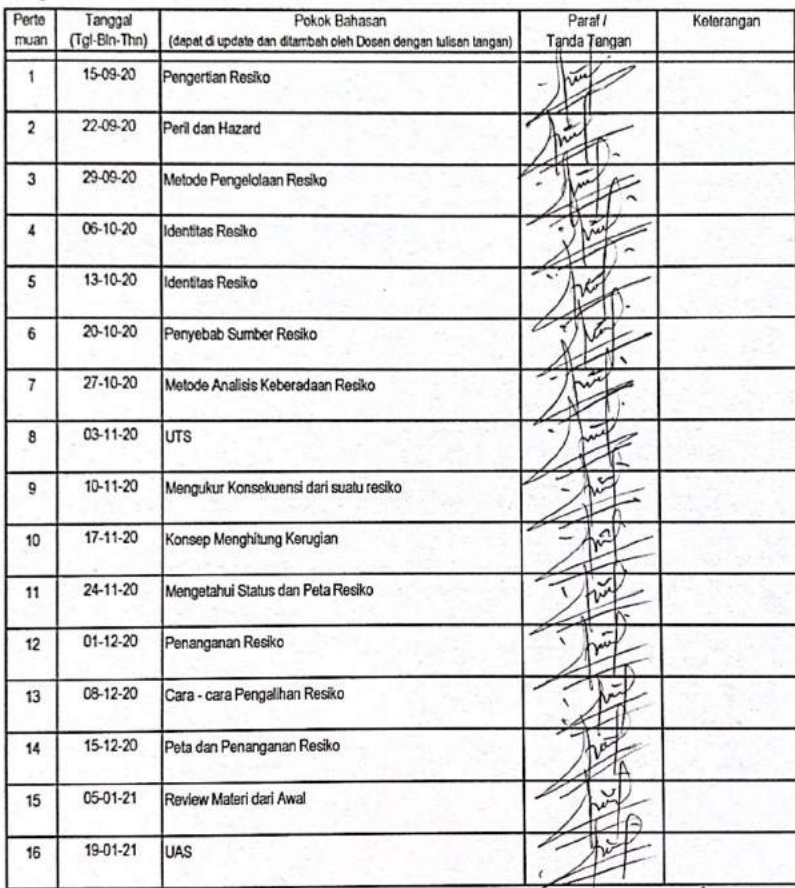 Perte muan Tanggal (Tgl-Bln-Thn) Pokok Bahasan (dapat di update dan ditambah oleh Dosen dengan tulisan tangan) Paraf / Tanda Tangan Keterangan
1 15-09-20 Pengertian Resiko
2 22-09-20 Peril dan Hazard
3 29-09-20 Metode Pengelolaan Resiko
4 06-10-20 Identitas Resiko
5 13-10-20 Identitas Resiko
6 20-10-20 Penyebab Sumber Resiko
7 27-10-20 Metode Analisis Keberadaan Resiko
8 03-11-20 UTS
9 10-11-20 Mengukur Konsekuensi dari suatu resiko
10 17-11-20 Konsep Menghitung Kerugian
11 24-11-20 Mengetahui Status dan Peta Resiko
12 01-12-20 Penanganan Resiko
13 08-12-20 Cara - cara Pengalihan Resiko
14 15-12-20 Peta dan Penanganan Resiko
15 05-01-21 Review Materi dari Awal
16 19-01-21 UAS